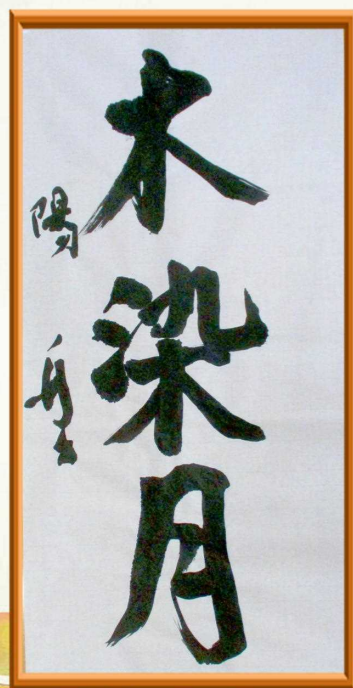 木染月
陽